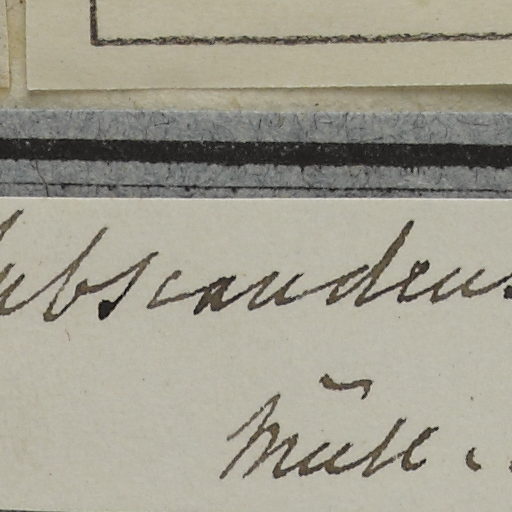 subscandens
Müll.